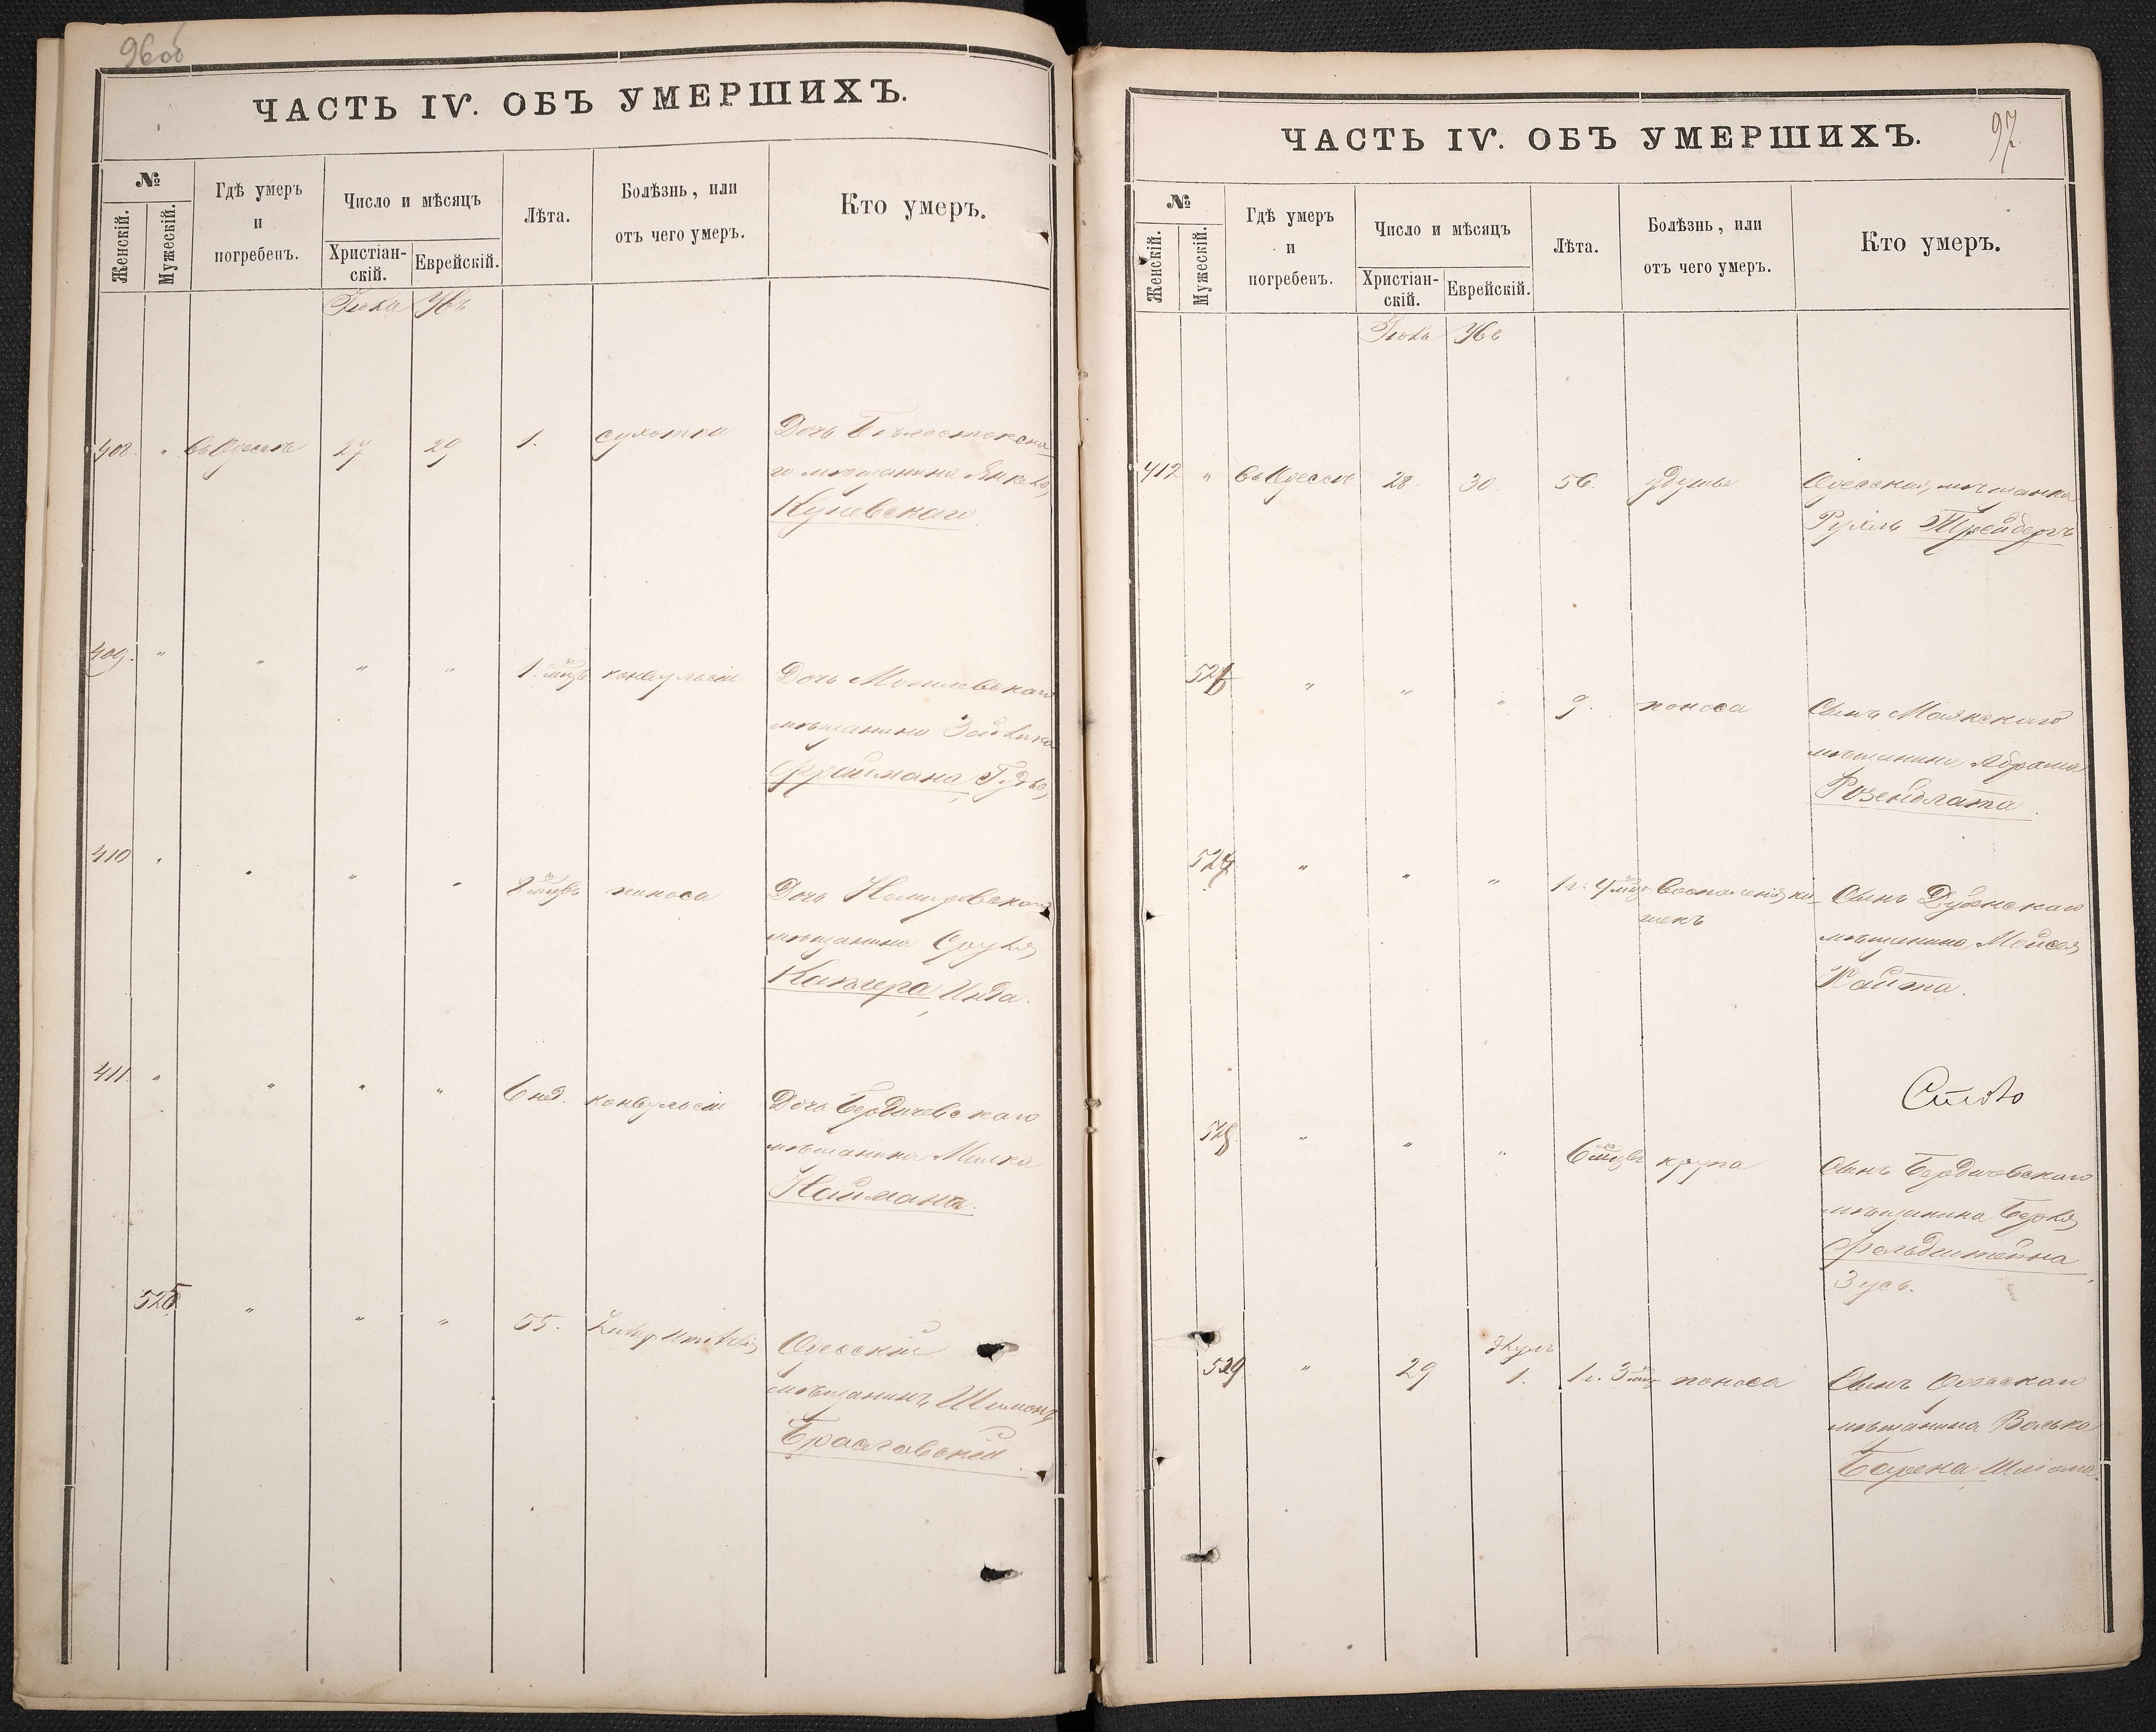 96об
ЧАСТЬ IV. ОБЪ УМЕРШИХЪ.
№
Женскій.
Мужескій.
Гдѣ умеръ
и
погребенъ.
Число и мѣсяцъ
Христіан-
скій.
Еврейскій.
Лѣта.
Болѣзнь, или
отъ чего умеръ.
Кто умеръ.
408. " въ Одессѣ 27 29 1. сухотки Дочь Бѣлостокска
го мѣщанина Янкеля
Куневскаго
409. " " " " 1. мцъ конвульсіи Дочь Могилевскаго
мѣщанина Зейлика
Фреймана,
410 " " " " 8 мцвъ поноса Дочь Немировскаго
мѣщанина Сруля
Канчера, Инда.
411 " " " " 6 нед. конвульсіи Дочь Бердичевскаго
мѣщанина Малка
Нейманъ.
525 " " " 55. Одесскій
мѣщанинъ Шимонъ
Браславскій
97
ЧАСТЬ IV. ОБЪ УМЕРШИХЪ.
№
Женскій.
Мужескій.
Гдѣ умеръ
и
погребенъ.
Число и мѣсяцъ
Христіан-
скій.
Еврейскій.
Лѣта.
Болѣзнь, или
отъ чего умеръ.
Кто умеръ.
412 " въ Одессѣ 28. 30. 56. удушья Одесская мѣщанка
Рухль
526 " " " 9. поноса Сынъ Маякскаго
мѣщанина Абрама
Розенблата.
527 " " " 1 г. 4 мцъ Воспаленія ки-
шекъ Сынъ Дубенскаго
мѣщанина Мойсея
528 " " " 6 мцвъ крупа Сынъ Бердичевскаго
мѣщанина Берля
Фельдштейна,
Зусь.
529 " 29 1. 1 г. 3 мц поноса Сынъ Одесскаго
мѣщанина Волька
Берена, Шлёма.